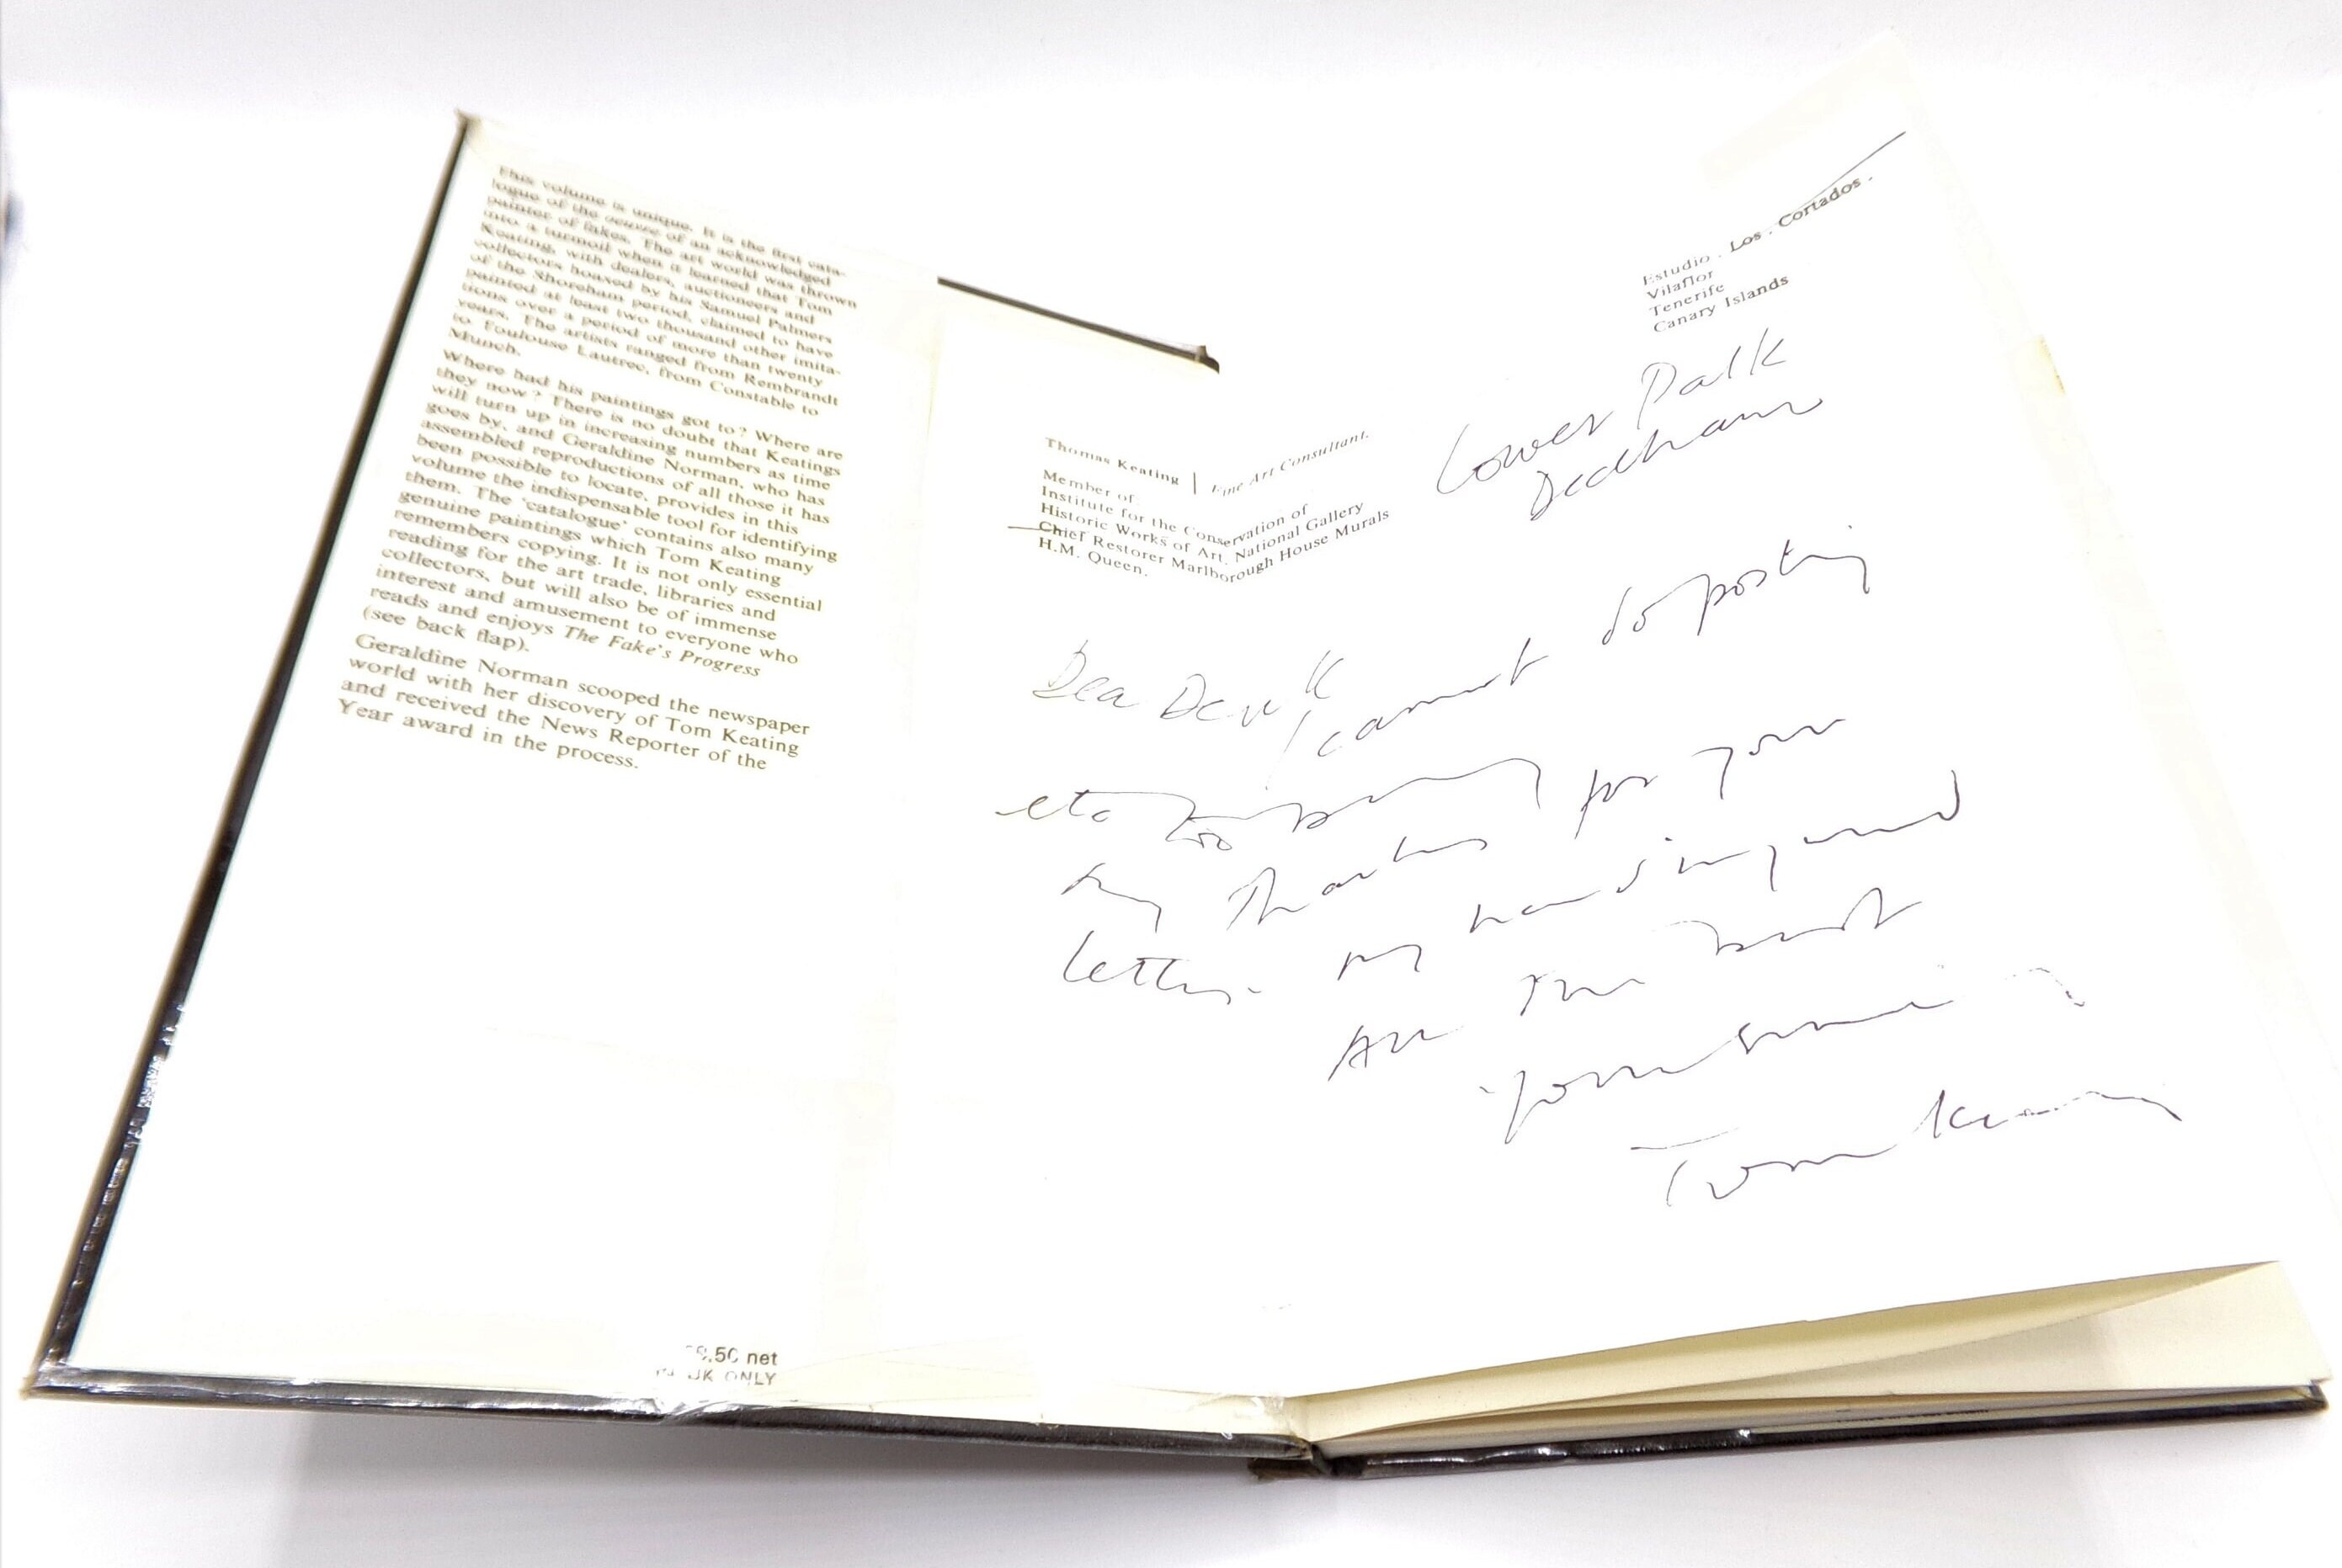 This volume is unique. It is the first cata-
logue of the oeuvre of an acknowledged
painter of fakes. The art world was thrown
into a turmoil when it learned that Tom
Keating, with dealers, auctioneers and
collectors hoaxed by his Samuel Palmers
of the Shoreham period, claimed to have
painted at least two thousand other imita-
tions over a period of more than twenty
years. The artists ranged from Rembrandt
to Toulouse Lautrec, from Constable to
Munch.
Where had his paintings got to? Where are
they now? There is no doubt that Keatings
will turn up in increasing numbers as time
goes by, and Geraldine Norman, who has
assembled reproductions of all those it has
been possible to locate, provides in this
volume the indispensable tool for identifying
them. The 'catalogue' contains also many
genuine paintings which Tom Keating
remembers copying. It is not only essential
reading for the art trade, libraries and
collectors, but will also be of immense
interest and amusement to everyone who
reads and enjoys The Fake's Progress
(see back flap).
Geraldine Norman scooped the newspaper
world with her discovery of Tom Keating
and received the News Reporter of the
Year award in the process.
.50 net
UK ONLY
Estudio . Los . Cortados .
Vilaflor
Tenerife
Canary Islands
Thomas Keating | Fine Art Consultant.
Member of
Institute for the Conservation of
Historic Works of Art, National Gallery
Chief Restorer Marlborough House Murals
H.M. Queen.
Lower Park
Dedham
Dear Derek
I cannot do posting
etc too busy
my Thanks for your
letter. my hand injured
All the best
Yours sincerely
Tom Keating